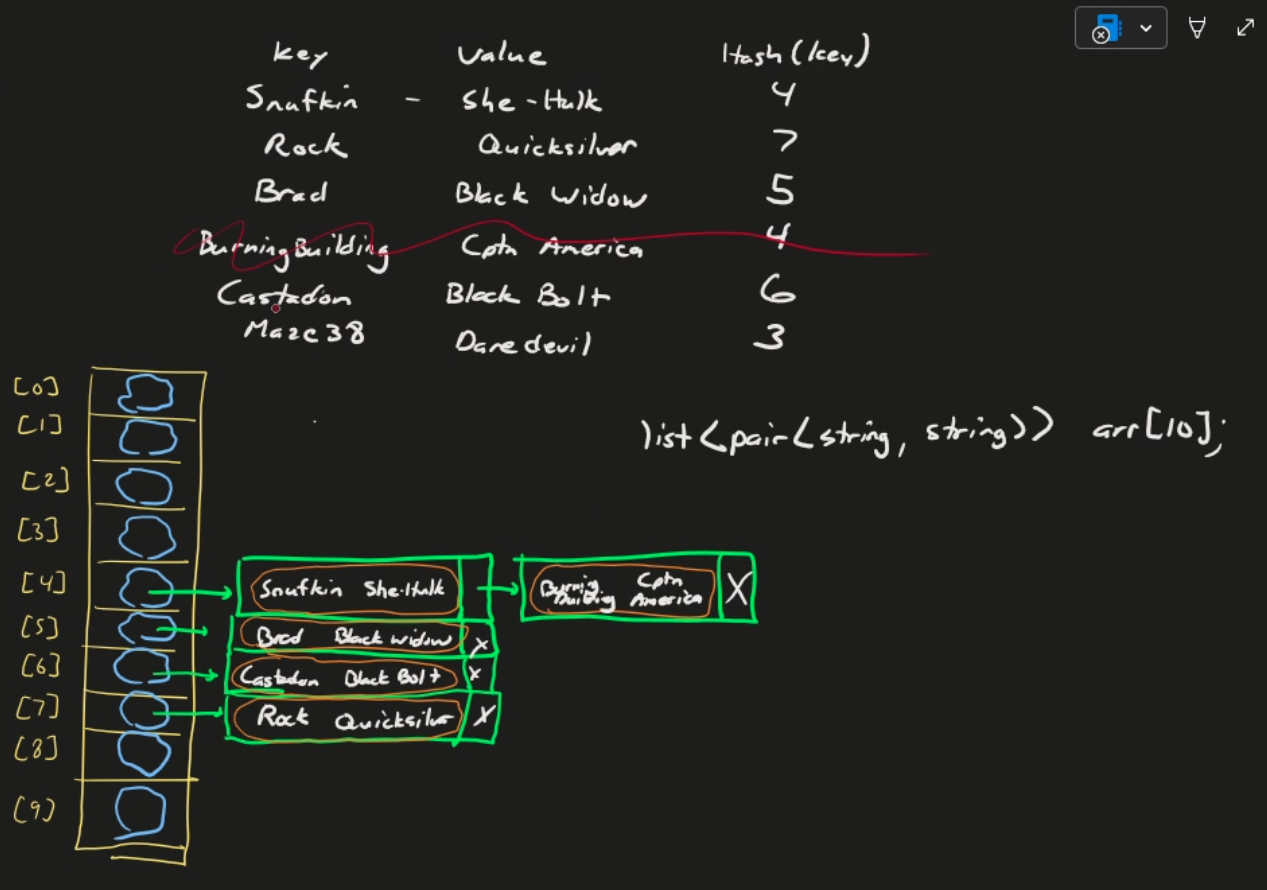 key value Hash(key)
Snufkin - She-Hulk 4
Rock Quicksilver 7
Brad Black Widow 5
BurningBuilding Cptn America 4
Castadon Black Bolt 6
Maze38 Daredevil 3
[0]
[1]
list<pair<string, string>> arr[10];
[2]
[3]
[4] Snufkin She-Hulk Burnig Cptn
Building America X
[5] Brad Black widow X
[6] Castadon Black Bolt X
[7] Rock Quicksilver X
[8]
[9]